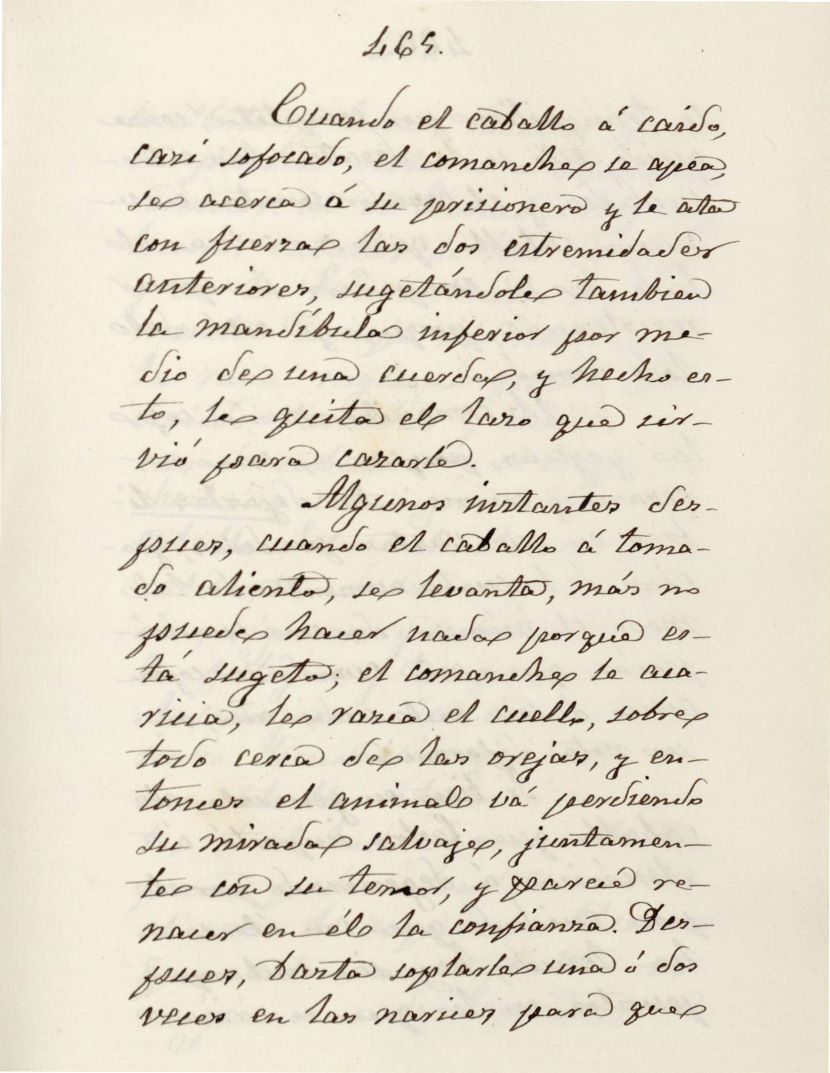 465.
Cuando el caballo á caido,
casi sofocado, el comanche se apea,
se acerca á su prisionero y le ata
con fuerza las dos estremidades
anteriores, sugetándole tambien
la mandíbula inferior por me-
dio de una cuerda, y hecho es-
to, le quita el lazo que sir-
vió para cazarle.
Algunos instantes des-
pues, cuando el caballo á toma-
do aliento, se levanta, más no
puede hacer nada porque es-
tá sugeto; el comanche le aca-
ricia, le razca el cuello, sobre
todo cerca de las orejas, y en-
tonces el animal vá perdiendo
su mirada salvaje, juntamen-
te con su temor, y parece re-
nacer en él la confianza. Des-
pues, basta soplarle una ó dos
veces en las narices para que